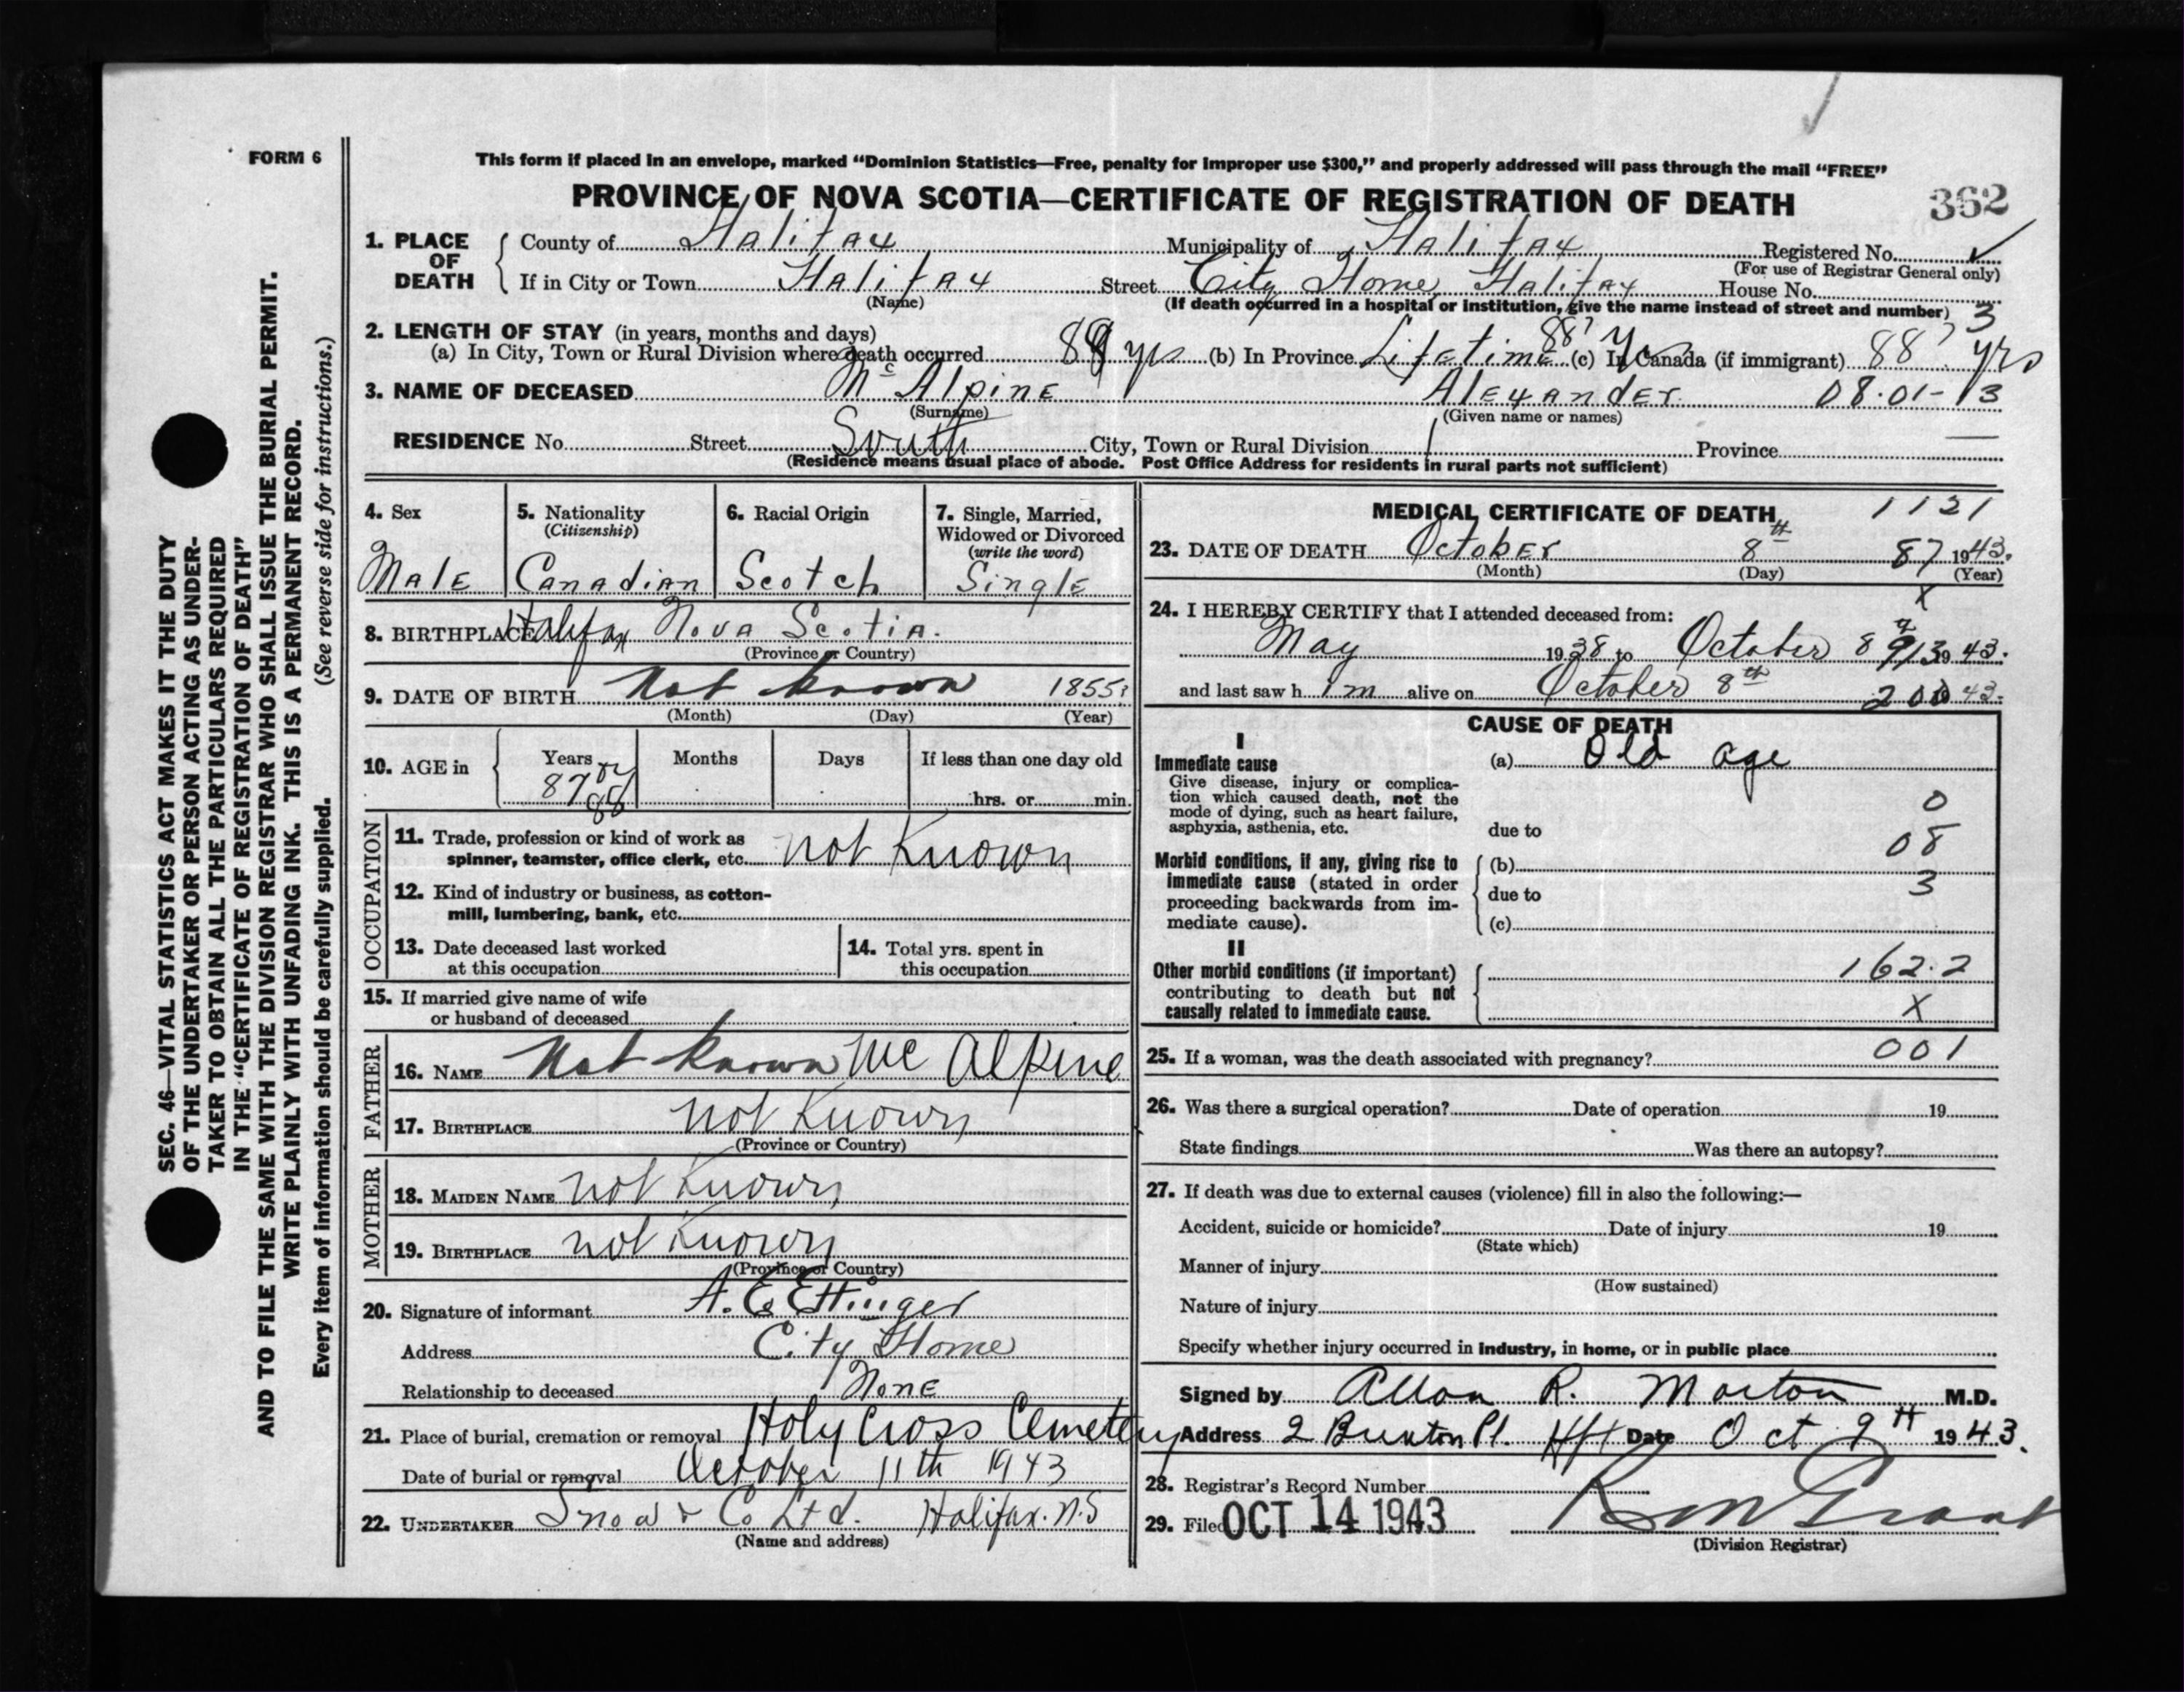 FORM 6
This form if placed in an envelope, marked “Dominion Statistics—Free, penalty for improper use $300,” and properly addressed will pass through the mail “FREE”
PROVINCE OF NOVA SCOTIA—CERTIFICATE OF REGISTRATION OF DEATH
362
1. PLACE OF DEATH
County of Halifax Municipality of Halifax Registered No. ✓
(For use of Registrar General only)
If in City or Town Halifax Street City Home Halifax House No.
(Name) (If death occurred in a hospital or institution, give the name instead of street and number) 3
2. LENGTH OF STAY (in years, months and days)
(a) In City, Town or Rural Division where death occurred yrs (b) In Province Lifetime 88? (c) In Canada (if immigrant) 88? yrs
3. NAME OF DECEASED McAlpine Alexander 08.01-13
(Surname) (Given name or names)
RESIDENCE No. Street South City, Town or Rural Division Province
(Residence means usual place of abode. Post Office Address for residents in rural parts not sufficient)
4. Sex
Male
5. Nationality
(Citizenship)
Canadian
6. Racial Origin
Scotch
7. Single, Married,
Widowed or Divorced
(write the word)
Single
8. BIRTHPLACE Halifax Nova Scotia.
(Province or Country)
9. DATE OF BIRTH Not known 1855?
(Month) (Day) (Year)
10. AGE in
Years Months Days If less than one day old
87 or 88 hrs. or min.
OCCUPATION
11. Trade, profession or kind of work as
spinner, teamster, office clerk, etc. not Known
12. Kind of industry or business, as cotton-
mill, lumbering, bank, etc.
13. Date deceased last worked
at this occupation
14. Total yrs. spent in
this occupation
15. If married give name of wife
or husband of deceased
FATHER
16. NAME Not known Mc Alpine
17. BIRTHPLACE not Known
(Province or Country)
MOTHER
18. MAIDEN NAME not Known
19. BIRTHPLACE not Known
(Province or Country)
20. Signature of informant A. E Ettinger
Address City Home
Relationship to deceased None
21. Place of burial, cremation or removal Holy Cross Cemetery
Date of burial or removal October 11th 1943
22. UNDERTAKER Snow & Co Ltd. Halifax. N.S
(Name and address)
MEDICAL CERTIFICATE OF DEATH 1121
23. DATE OF DEATH October 8th 87 1943.
(Month) (Day) (Year)
X
24. I HEREBY CERTIFY that I attended deceased from:
May 1938 to October 8 43.
and last saw him alive on October 8th 200 43.
CAUSE OF DEATH
I
Immediate cause
Give disease, injury or complica-
tion which caused death, not the
mode of dying, such as heart failure,
asphyxia, asthenia, etc.
(a) Old age
0
due to
08
Morbid conditions, if any, giving rise to
immediate cause (stated in order
proceeding backwards from im-
mediate cause).
(b)
3
due to
(c)
II
Other morbid conditions (if important)
contributing to death but not
causally related to immediate cause.
162.2
X
25. If a woman, was the death associated with pregnancy? 001
26. Was there a surgical operation? Date of operation 19
State findings Was there an autopsy?
27. If death was due to external causes (violence) fill in also the following:—
Accident, suicide or homicide? Date of injury 19
(State which)
Manner of injury
(How sustained)
Nature of injury
Specify whether injury occurred in industry, in home, or in public place
Signed by Allan R. Morton M.D.
Address 2 Brenton Pl. Hfx Date Oct 9th 1943.
28. Registrar's Record Number
29. Filed OCT 14 1943
(Division Registrar)
SEC. 46—VITAL STATISTICS ACT MAKES IT THE DUTY
OF THE UNDERTAKER OR PERSON ACTING AS UNDER-
TAKER TO OBTAIN ALL THE PARTICULARS REQUIRED
IN THE “CERTIFICATE OF REGISTRATION OF DEATH”
AND TO FILE THE SAME WITH THE DIVISION REGISTRAR WHO SHALL ISSUE THE BURIAL PERMIT.
WRITE PLAINLY WITH UNFADING INK. THIS IS A PERMANENT RECORD.
Every item of information should be carefully supplied. (See reverse side for instructions.)